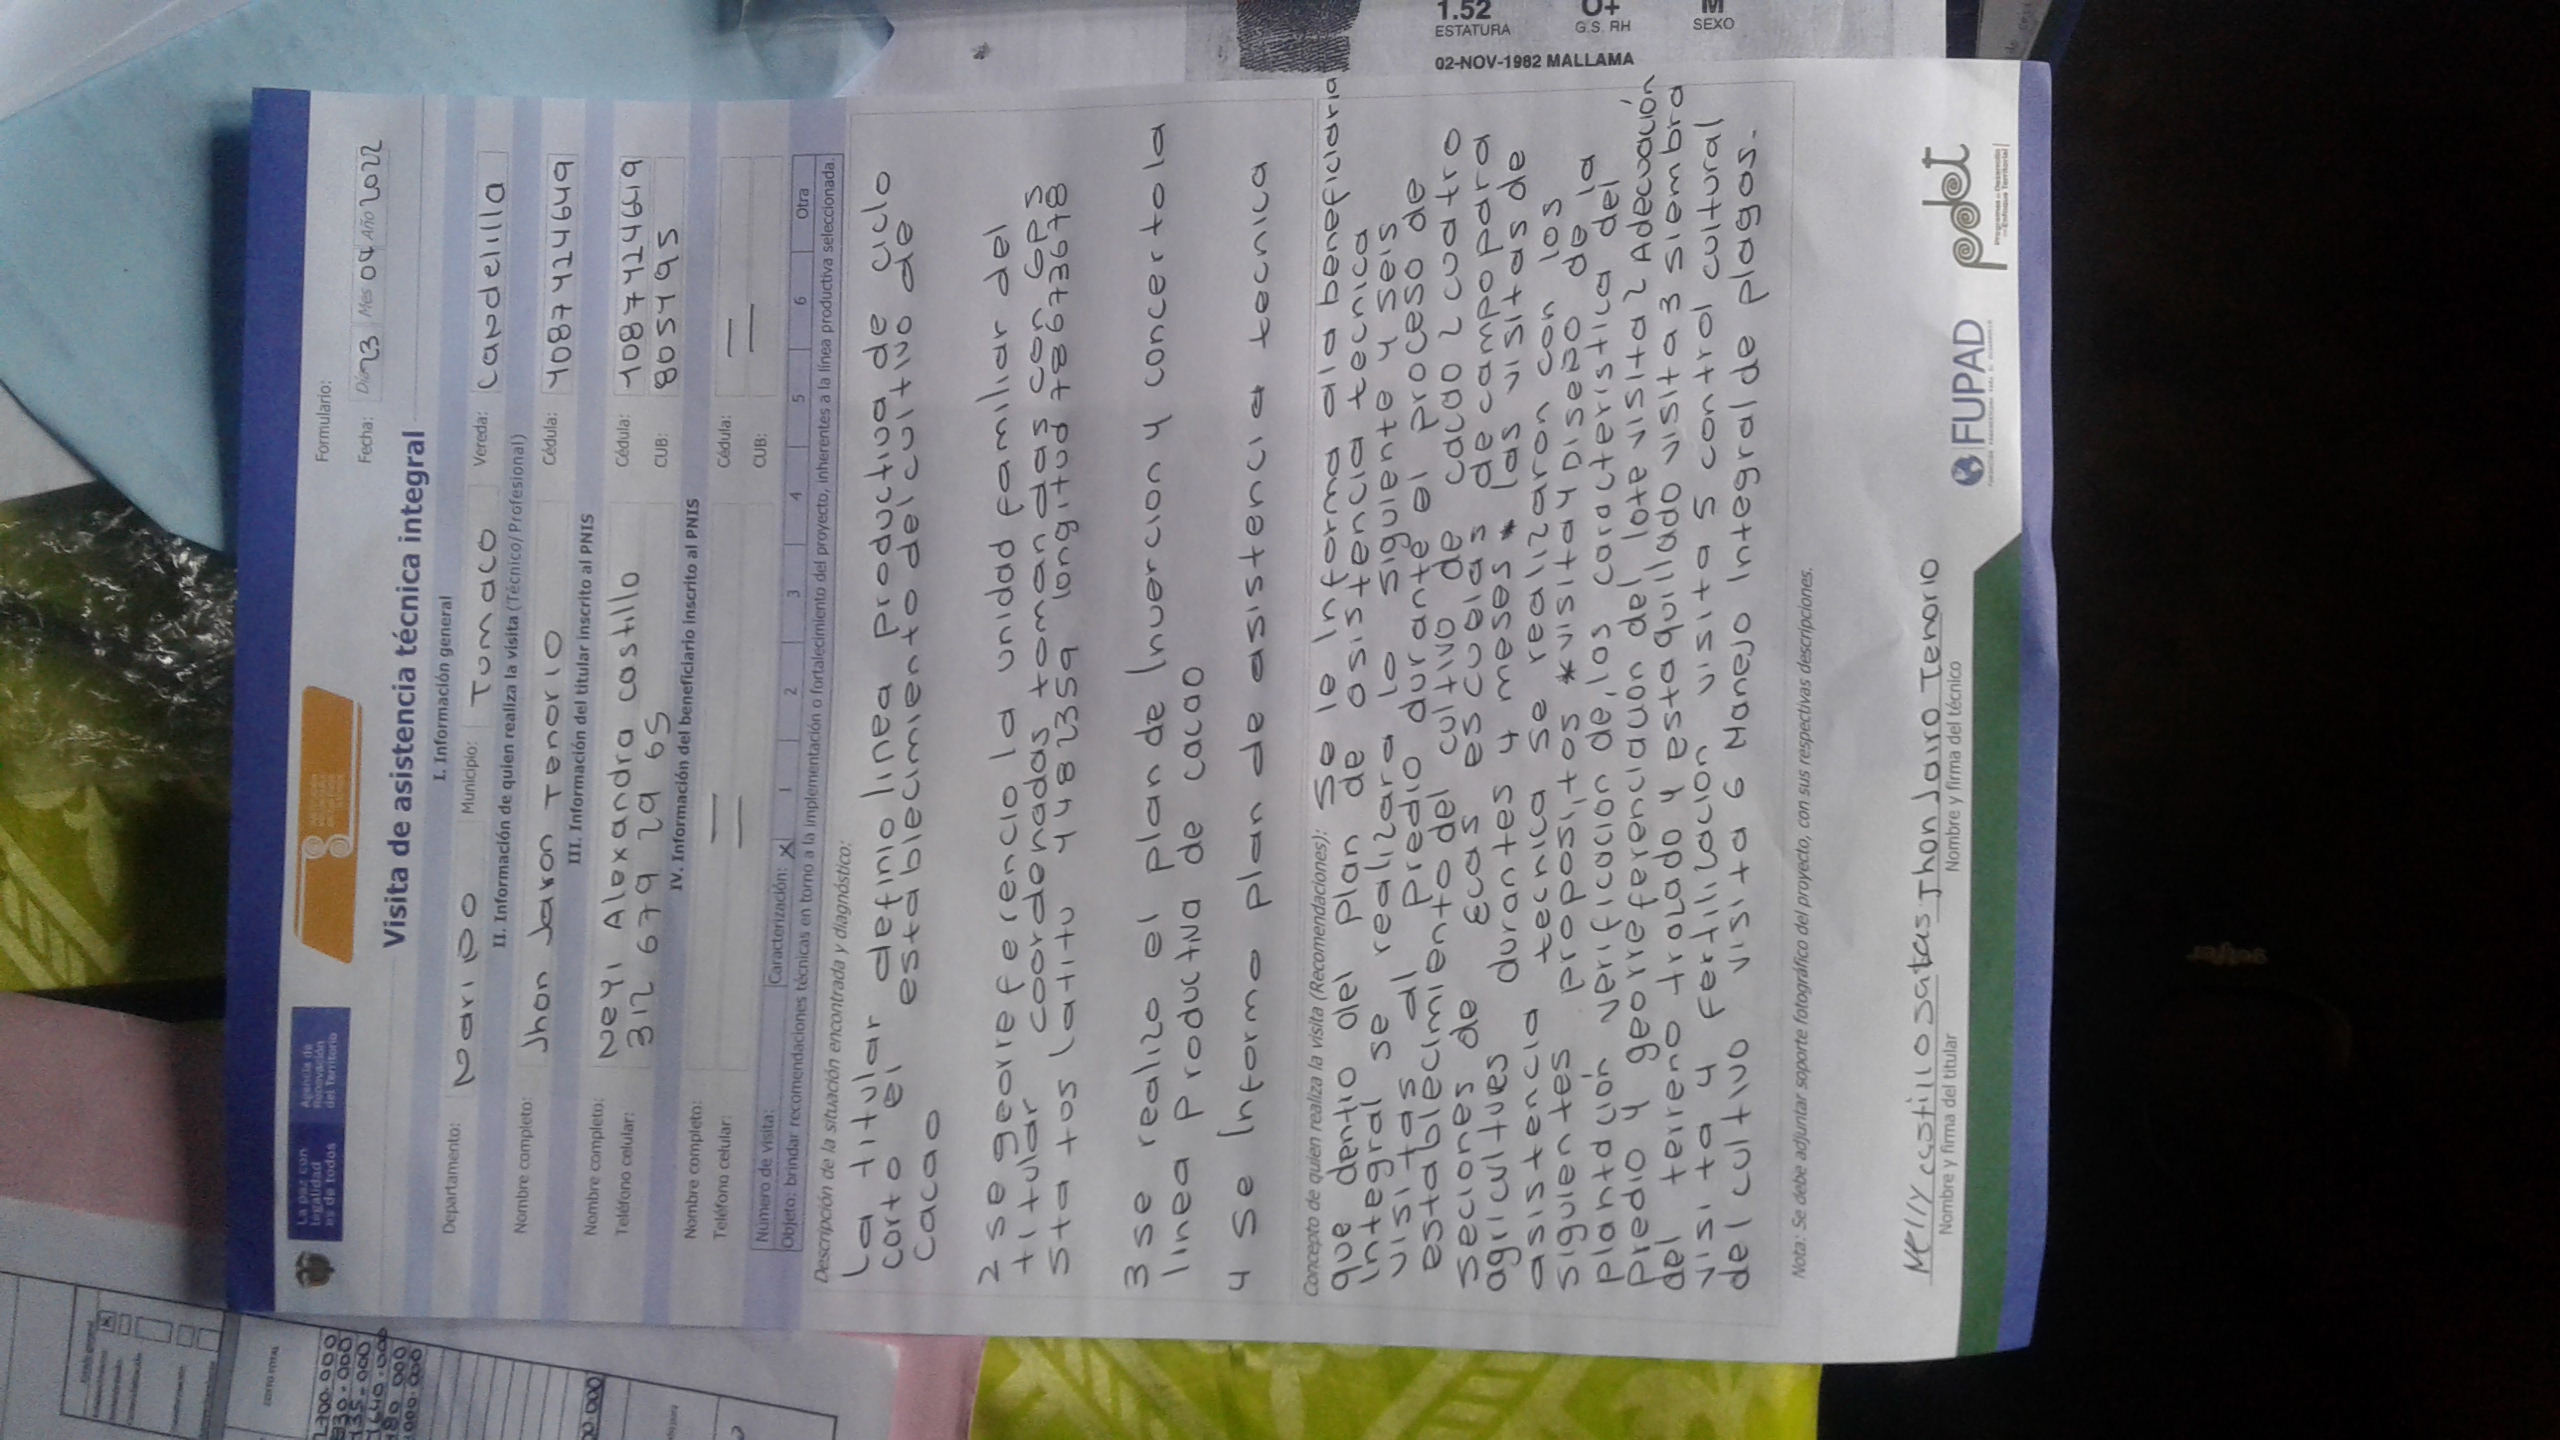 La paz con
legalidad
es de todos
Agencia de
Renovación
del Territorio
Formulario:
Fecha: Día 23 Mes 04 Año 2022
Visita de asistencia técnica integral
I. Información general
Departamento: Nariño Municipio: Tumaco Vereda: candelilla
II. Información de quien realiza la visita (Técnico/Profesional)
Nombre completo: Jhon Jaron Tenorio Cédula: 1087424649
III. Información del titular inscrito al PNIS
Nombre completo: Neyi Alexandra castillo Cédula: 1087424619
Teléfono celular: 312 679 29 65 CUB: 805495
IV. Información del beneficiario inscrito al PNIS
Nombre completo: — Cédula: —
Teléfono celular: — CUB: —
Número de visita: Caracterización: X 1 2 3 4 5 6 Otra
Objeto: brindar recomendaciones técnicas en torno a la implementación o fortalecimiento del proyecto, inherentes a la línea productiva seleccionada.
Descripción de la situación encontrada y diagnóstico:
La titular definio linea productiva de ciclo
corto el establecimiento del cultivo de
cacao
2 se georreferencio la unidad familiar del
titular coordenadas tomandas con GPS
sta tos Latitu 4482359 longitud 786673678
3 se realizo el plan de Inuercion y concerto la
linea productiva de cacao
4 se Informo plan de asistencia tecnica
Concepto de quien realiza la visita (Recomendaciones): Se le Informa ala beneficiaria
que dentio del plan de asistencia tecnica
integral se realizara lo siguiente y seis
visitas al predio durante el proceso de
establecimiento del cultivo de cacao 2 cuatro
seciones de Ecas escuelas de campo para
agricultues durantes 4 meses * las visitas de
asistencia tecnica se realizaron con los
siguientes proposi,tos * visita 1 Diseño de la
plantación verificacion de,los caracteristica del
predio y georreferenciación del lote visita 2 Adecuación
del terreno trazado y estaquillado visita 3 siembra
visita 4 Fertilizacion visita 5 control cultural
del cultivo visita 6 Manejo Integral de plagos.
Nota: Se debe adjuntar soporte fotográfico del proyecto, con sus respectivas descripciones.
Nelly castillo satas Jhon Jairo Tenorio
Nombre y firma del titular Nombre y firma del técnico
FUPAD
pdet
Programas de Desarrollo
con Enfoque Territorial
1.52 O+ M
ESTATURA G.S. RH SEXO
02-NOV-1982 MALLAMA
COSTO TOTAL